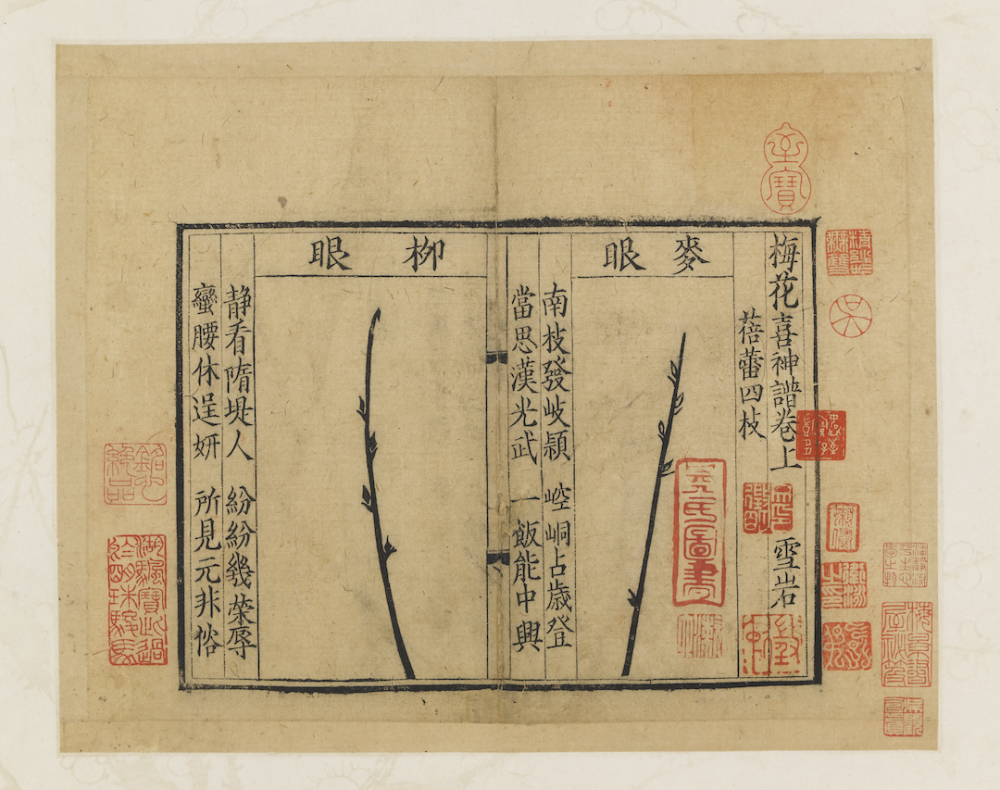 梅花喜神譜卷上 雪岩
蓓蕾四枝
麥眼
南枝發岐穎 崆峒占歲登
當思漢光武 一飯能中興
柳眼
静看隋堤人 紛紛幾榮辱
蠻腰休逞妍 所見元非俗
湖颿寶此過
於明珠駿馬